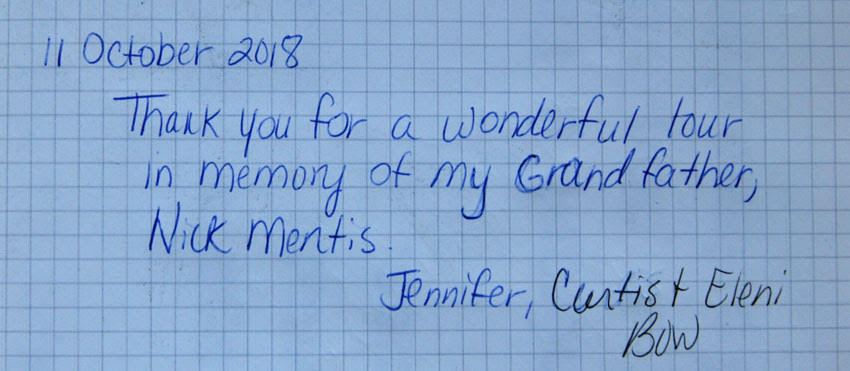 11 October 2018
Thank you for a wonderful tour
in memory of my Grandfather,
Nick Mentis.
Jennifer, Curtis + Eleni
Bow